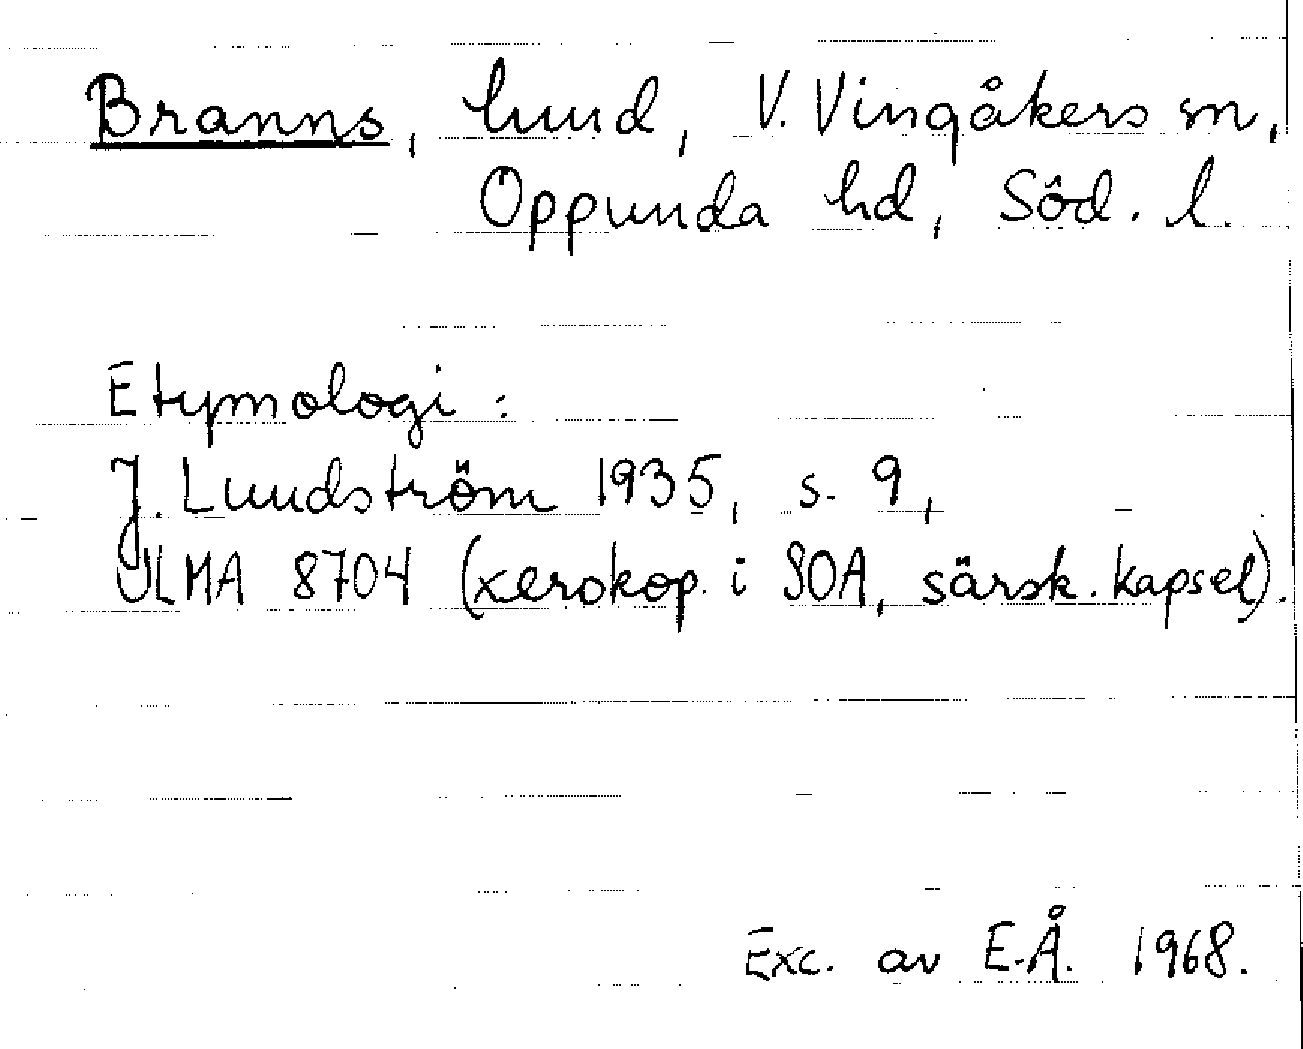 Branns, lund, V. Vingåkers sn,
Oppunda hd, Söd. l.
Etymologi:
J. Lundström 1935, s. 9,
ULMA 8704 (xerokop. i SOA, särsk. kapsel).
Exc. av E.Å. 1968.